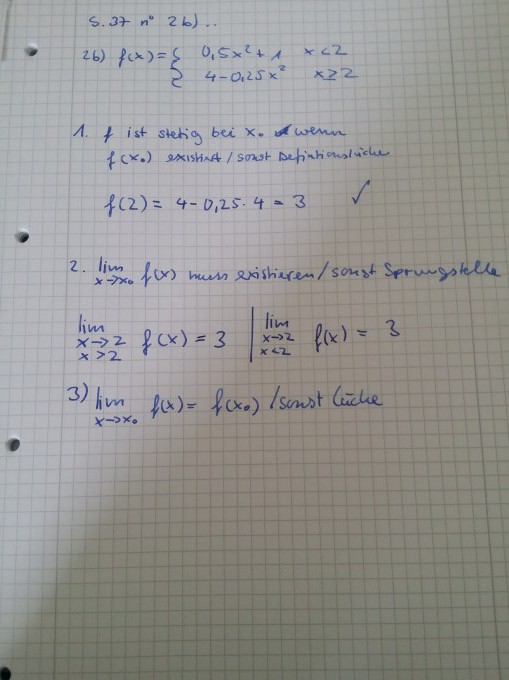 S.37 n° 2b)..
2b) f(x) = { 0,5x² + 1 x < 2
4 - 0,25x² x ≥ 2
1. f ist stetig bei x₀ wenn
f(x₀) existiert / sonst Definitionslücke
f(2) = 4 - 0,25 · 4 = 3 ✓
2. lim x→x₀ f(x) muss existieren / sonst Sprungstelle
lim x→2 x>2 f(x) = 3 | lim x→2 x<2 f(x) = 3
3) lim x→x₀ f(x) = f(x₀) / sonst Lücke